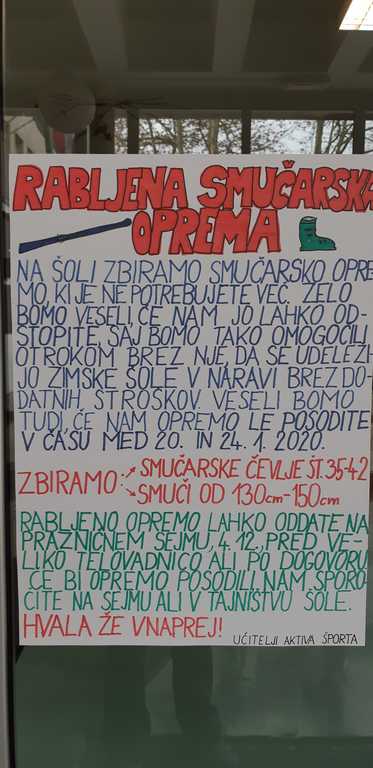 RABLJENA SMUČARSKA
OPREMA
NA ŠOLI ZBIRAMO SMUČARSKO OPRE-
MO, KI JE NE POTREBUJETE VEČ. ZELO
BOMO VESELI, ČE NAM JO LAHKO OD-
STOPITE, SAJ BOMO TAKO OMOGOČILI
OTROKOM BREZ NJE, DA SE UDELEŽI-
JO ZIMSKE ŠOLE V NARAVI BREZ DO-
DATNIH STROŠKOV. VESELI BOMO
TUDI, ČE NAM OPREMO LE POSODITE
V ČASU MED 20. IN 24. 1. 2020.
ZBIRAMO: SMUČARSKE ČEVLJE ŠT. 35-42
SMUČI OD 130cm-150cm
RABLJENO OPREMO LAHKO ODDATE NA
PRAZNIČNEM SEJMU, 4.12., PRED VE-
LIKO TELOVADNICO ALI PO DOGOVORU.
ČE BI OPREMO POSODILI NAM, SPORO-
ČITE NA SEJMU ALI V TAJNIŠTVU ŠOLE.
HVALA ŽE VNAPREJ!
UČITELJI AKTIVA ŠPORTA